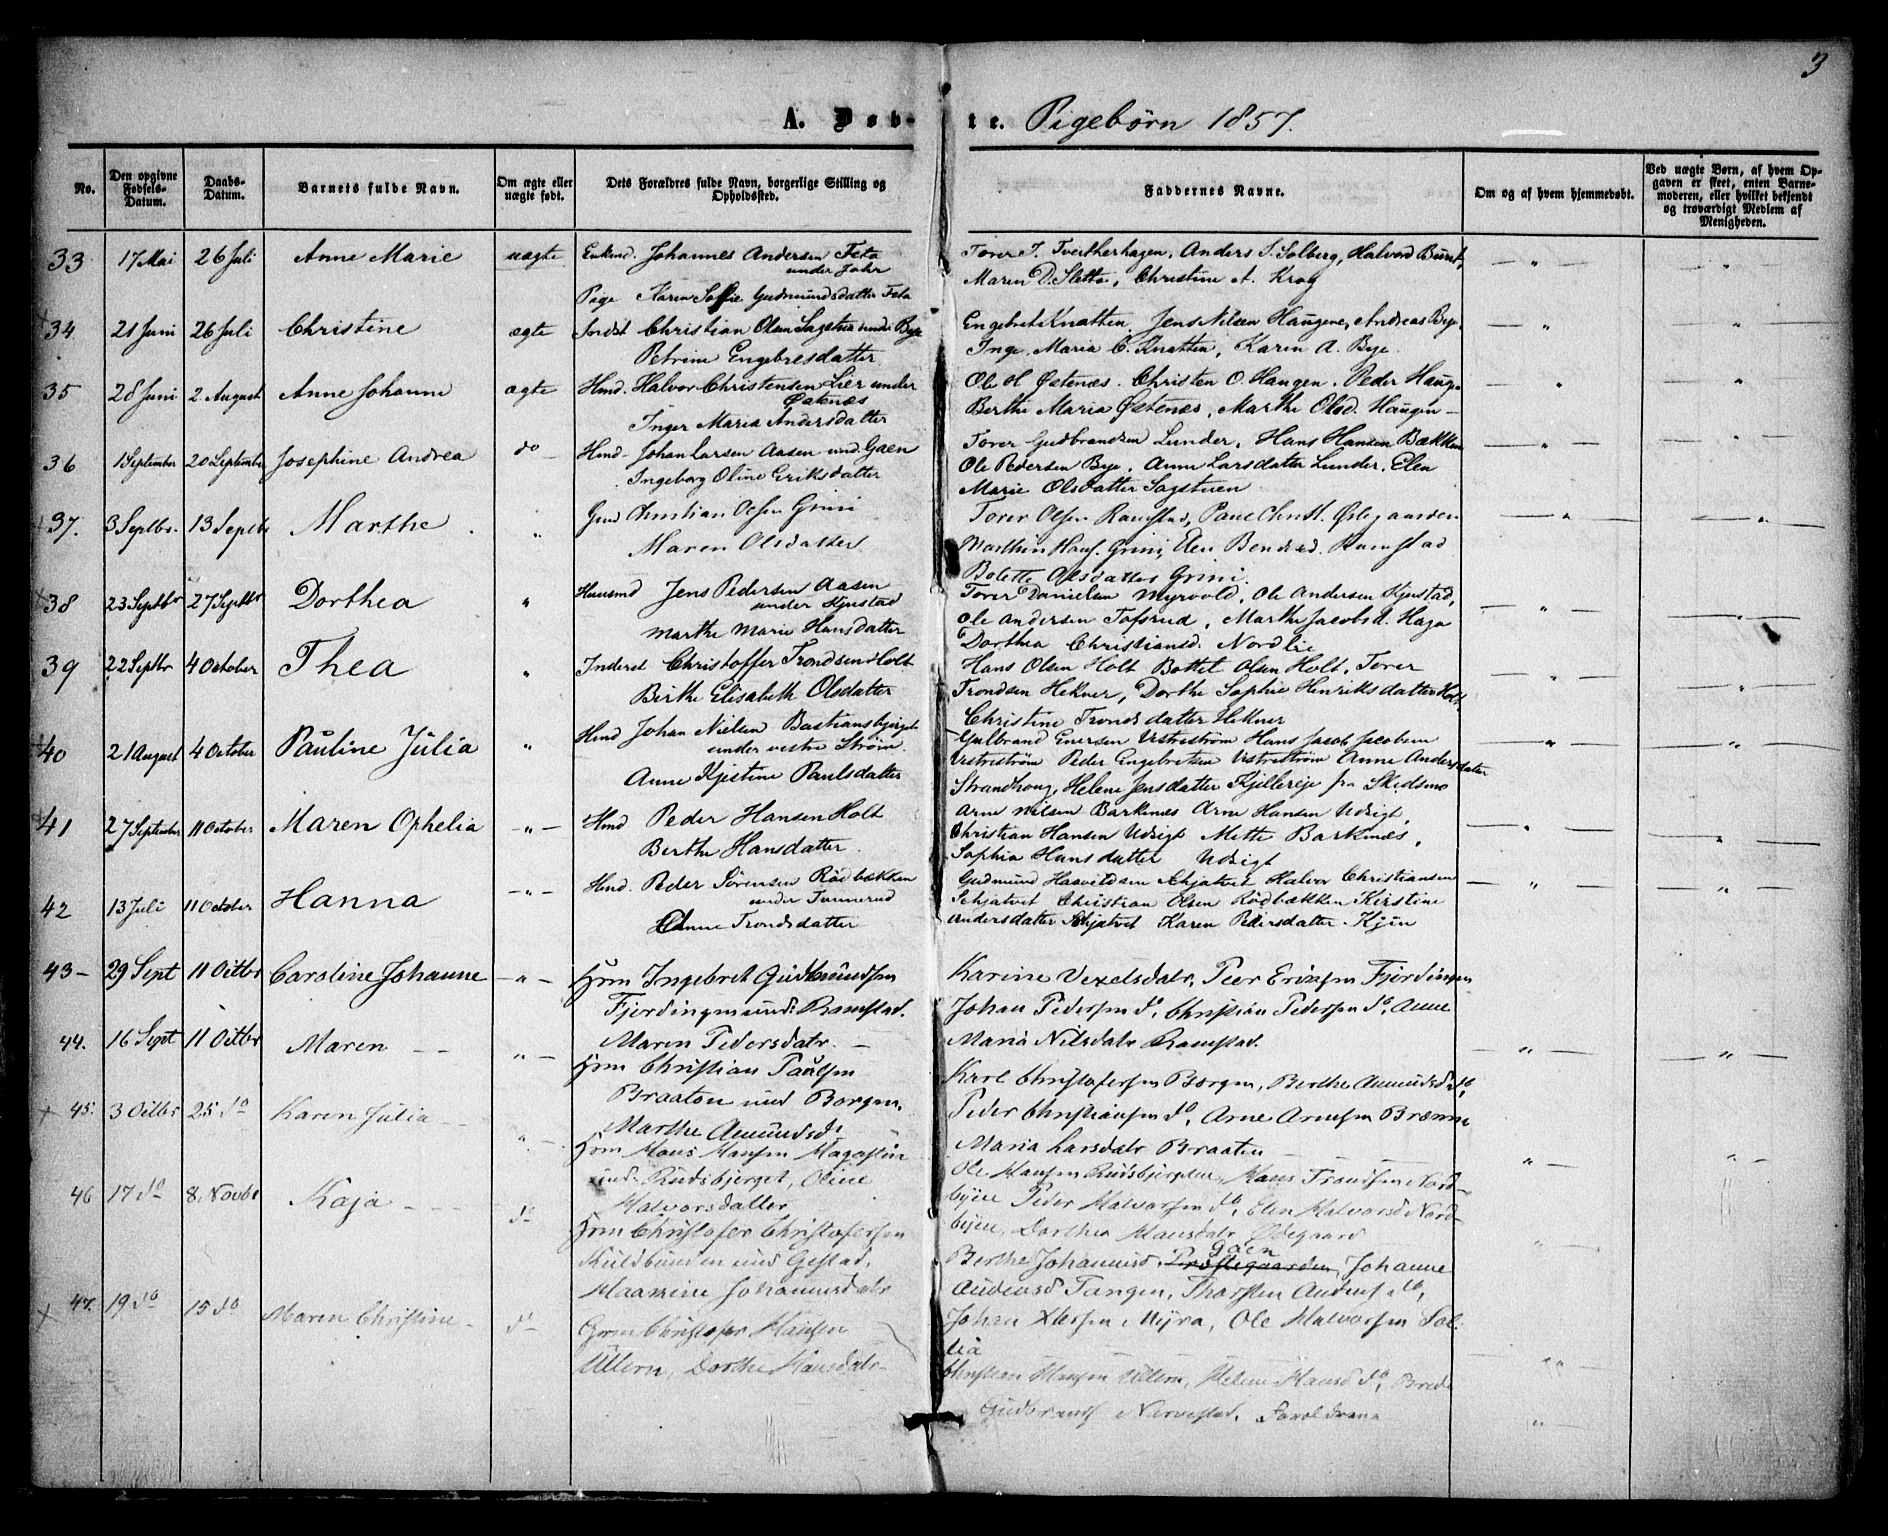 3
A. Døb- te. Pigebørn 1857.
No.
Den opgivne Fødsels-Datum.
Daabs-Datum.
Barnets fulde Navn.
Om ægte eller uægte født.
Dets Forældres fulde Navn, borgerlige Stilling og Opholdssted.
Faddernes Navne.
Om og af hvem hjemmedøbt.
Ved uægte Børn, af hvem Opgaven er skeet, enten Barnemoderen, eller hvilket bekjendt og troværdigt Medlem af Menigheden.
33 17 Mai 26 Juli Anne Marie uægte Enkmd. Johannes Andersen Feta
under Johr
Pige Karen Sofie Gudmundsdatter Feta
Torer J. Tveitherhagen, Anders S. Solberg, Halvord
Maren D. Sletto, Christine A. Krog
34 21 Juni 26 Juli Christine ægte Indst Christian Olsen Sagstua under Bye
Petrine Engebresdatter
Engebret Knatten, Jens Nilsen Haugene, Andreas Bye,
Inge Maria C. Knatten, Karen A. Bye
35 28 Juni 2 August Anne Johanne ægte Hmd. Halvor Christensen Lier under
Østenæs
Inger Maria Andersdatter
Ole H Østenæs. Christen O. Haugen. Peder Haugen
Berthe Maria Østenæs, Marthe Olsd. Haugen
36 1 September 20 September Josephine Andrea do Hmd. Johan Larsen Aasen und. Gaen
Ingeborg Oline Eriksdatter
Torer Gudbrandsen Lunder, Hans Hansen Bækken
Ole Pedersen Bye. Anne Larsdatter Lunder. Elen
Marie Olsdatter Sagstuen
37. 3 Septbr. 13 Septbr Marthe Gmd Christian Olsen Grini
Maren Olsdatter
Torer Olsen Ramstad, Paul Christ.
Marthin Hans. Grini, Elen Ramstad
Bolette Olsdatter Grini
38 23 Septbr 27 Septbr Dorthea Huusmd Jens Pedersen Aasen
under Kjustad
Marthe Marie Hansdatter
Torer Danielsen Myrvold, Ole Andersen Kjustad,
Ole Andersen Tofsrud, Marthe Jacobsd. Haga
Dorthea Christiansd. Nordlie
39 22 Septbr 4 October Thea Inderst Christoffer Trondsen Holt
Birthe Elisabeth Olsdatter
Hans Olsen Holt Bottel Olsen Holt, Torer
Trondsen Hekner, Dorthe Sophie Henriksdatter Holt
Christine Trondsdatter Hekner
40 21 August 4 October Pauline Julia Hmd Johan Nielsen Bastiansbjerget
under vestre Strøm
Anne Kjestine Paulsdatter
Gulbrand Enersen Vestreström Hans Jacob Jacobsen
Vestreström Peder Engebretsen Vestreström Anne Andersdatter
Strandhoug, Helene Jensdatter Kjellereje fra Skedsmo
41 27 September 11 October Maren Ophelia Hmd Peder Hansen Holt
Berthe Hansdatter
Arne Nilsen Barknes Arne Hansen Udsigt,
Christian Hansen Udsigt Mette Barknæs,
Sophia Hansdatter Udsigt
42 13 Juli 11 October Hanna Hmd. Peder Sörensen Rödbækken
under Tannerud
Anne Trondsdatter
Gudmund Haavildsen Skjatvet Halvor Christiansen
Schjatvet Christian Olsen Rödbækken Kirstine
Andersdatter Skjatvet Karen Pedersdatter Kjus
43 29 Sept 11 Octbr Caroline Johanne Hsm Ingebret Gudmundsen
Fjerdingen und: Ramstad.
Maren Pedersdatr.
Karine Vexelsdatr, Peer Eriksen Fjerdingen
Johan Pedersen do, Christian Pedersen do, Anne
Maria Nilsdatr Ramstad.
44. 16 Sept 11 Octbr Maren Hsm Christian Paulsen
Braaten und Borgen,
Marthe Amundsd
Karl Christofersen Borgen, Berthe Amundsd do,
Peder Christiansen do, Arne Arnesen Brænne
Maria Larsdatr Braaten
45. 3 Octbr 25 do Karen Julia Hsm Hans Hansen Magasin
und: Rudsbjerget, Oline
Halvorsdatter
Ole Hansen Rudsbjerget, Hans Trondsen Nord-
byen Peder Halvorsen do, Elen Halvorsd Nord-
byen, Dorthea Hansdatr Ødegaard
46 17 do 8 Novbr Kaja do Hsm Christofer Christofersen
Kuldbunden und Gestad,
Maarine Johannesdatr
Berthe Johannesd. Gaen Prestegaarden, Johanne
Audensd Tangen, Thorsten Audens do,
Johan Myra, Ole Halvorsen Sol-
lia
47. 19 do 15 do Maren Christine do Gsm Christofer Hansen
Ullern, Dorthe Hansdatr
Christian Hansen Ullern, Helene Hansd do, Brede
Gudbrands Nervestad, Forældrene